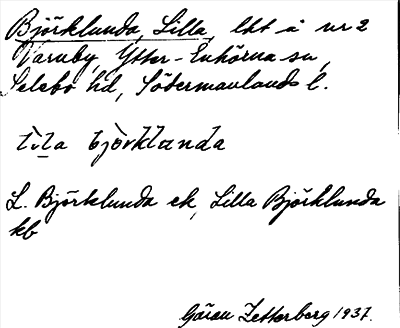 Björklunda, Lilla, lht å nr 2
Varuby, Ytter-Enhörna sn,
Selebo hd, Södermanlands l.
lila björklanda
L. Björklunda ek, Lilla Björklunda
kb
Göran Zetterberg 1937.